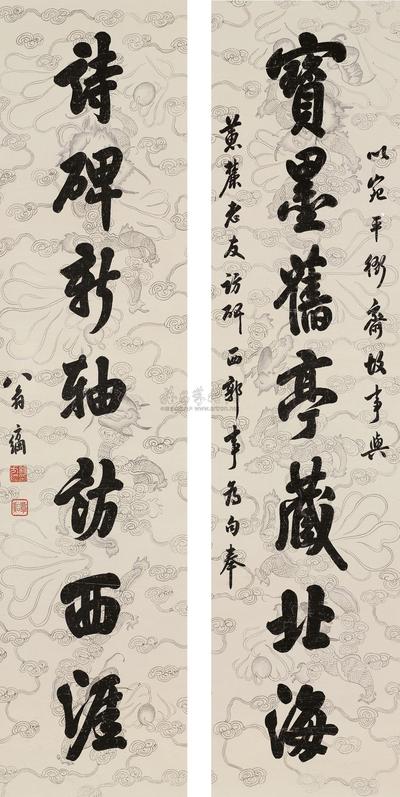 以宛平衙齋故事與
寶墨舊亭藏北海
黃麓老友訪碑西郭事為句奉
詩碑新軸訪西涯
八翁